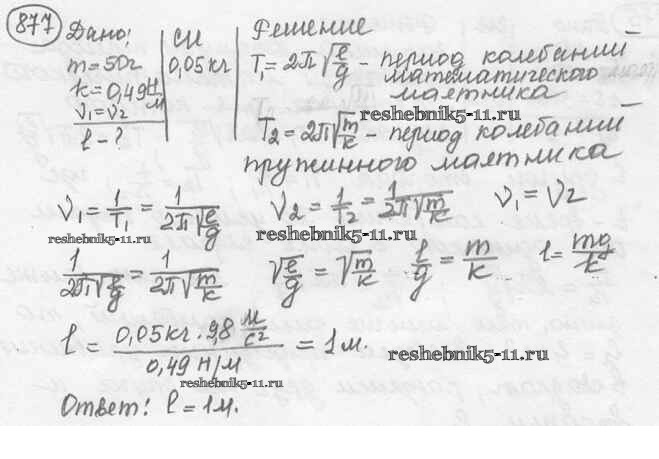 877 Дано: СИ Решение
m = 50г 0,05кг T₁ = 2π√(l/g) - период колебаний
k = 0,49 Н/м математического
ν₁ = ν₂ маятника
reshebnik5-11.ru
l - ? T₂ = 2π√(m/k) - период колебаний
пружинного маятника
ν₁ = 1/T₁ = 1/(2π√(l/g)) ν₂ = 1/T₂ = 1/(2π√(m/k)) ν₁ = ν₂
reshebnik5-11.ru reshebnik5-11.ru
1/(2π√(l/g)) = 1/(2π√(m/k)) √(l/g) = √(m/k) l/g = m/k l = mg/k
l = (0,05кг · 9,8 м/с²)/(0,49 Н/м) = 1 м.
reshebnik5-11.ru
reshebnik5-11.ru
Ответ: l = 1м.